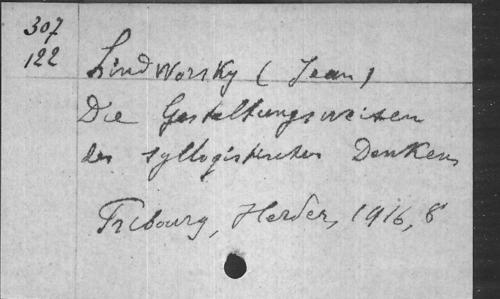 307
122
Lindworsky (Jean)
Die Gestaltungsweisen
des syllogistischen Denkens
Fribourg, Herder, 1916, 8°